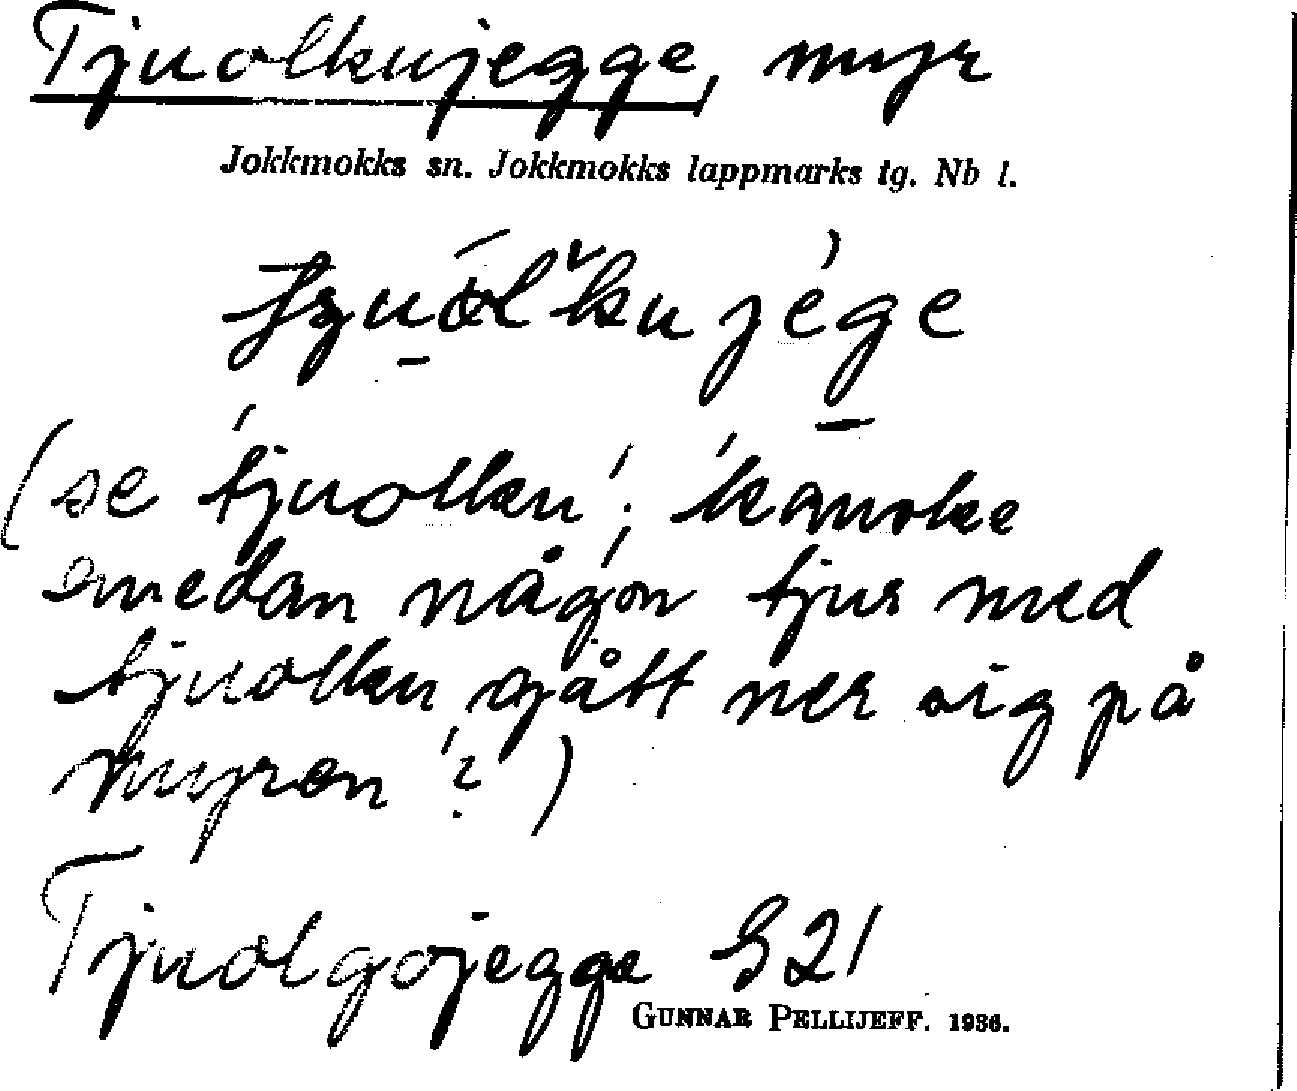 Tjuolkujegge, myr
Jokkmokks sn. Jokkmokks lappmarks tg. Nb l.
jégе
(se 'tjuolku'; kanske
emedan någon tjur med
tjuolku gått ner sig på
myren'?)
Tjuolgojegge S 21
GUNNAR PELLIJEFF. 1936.